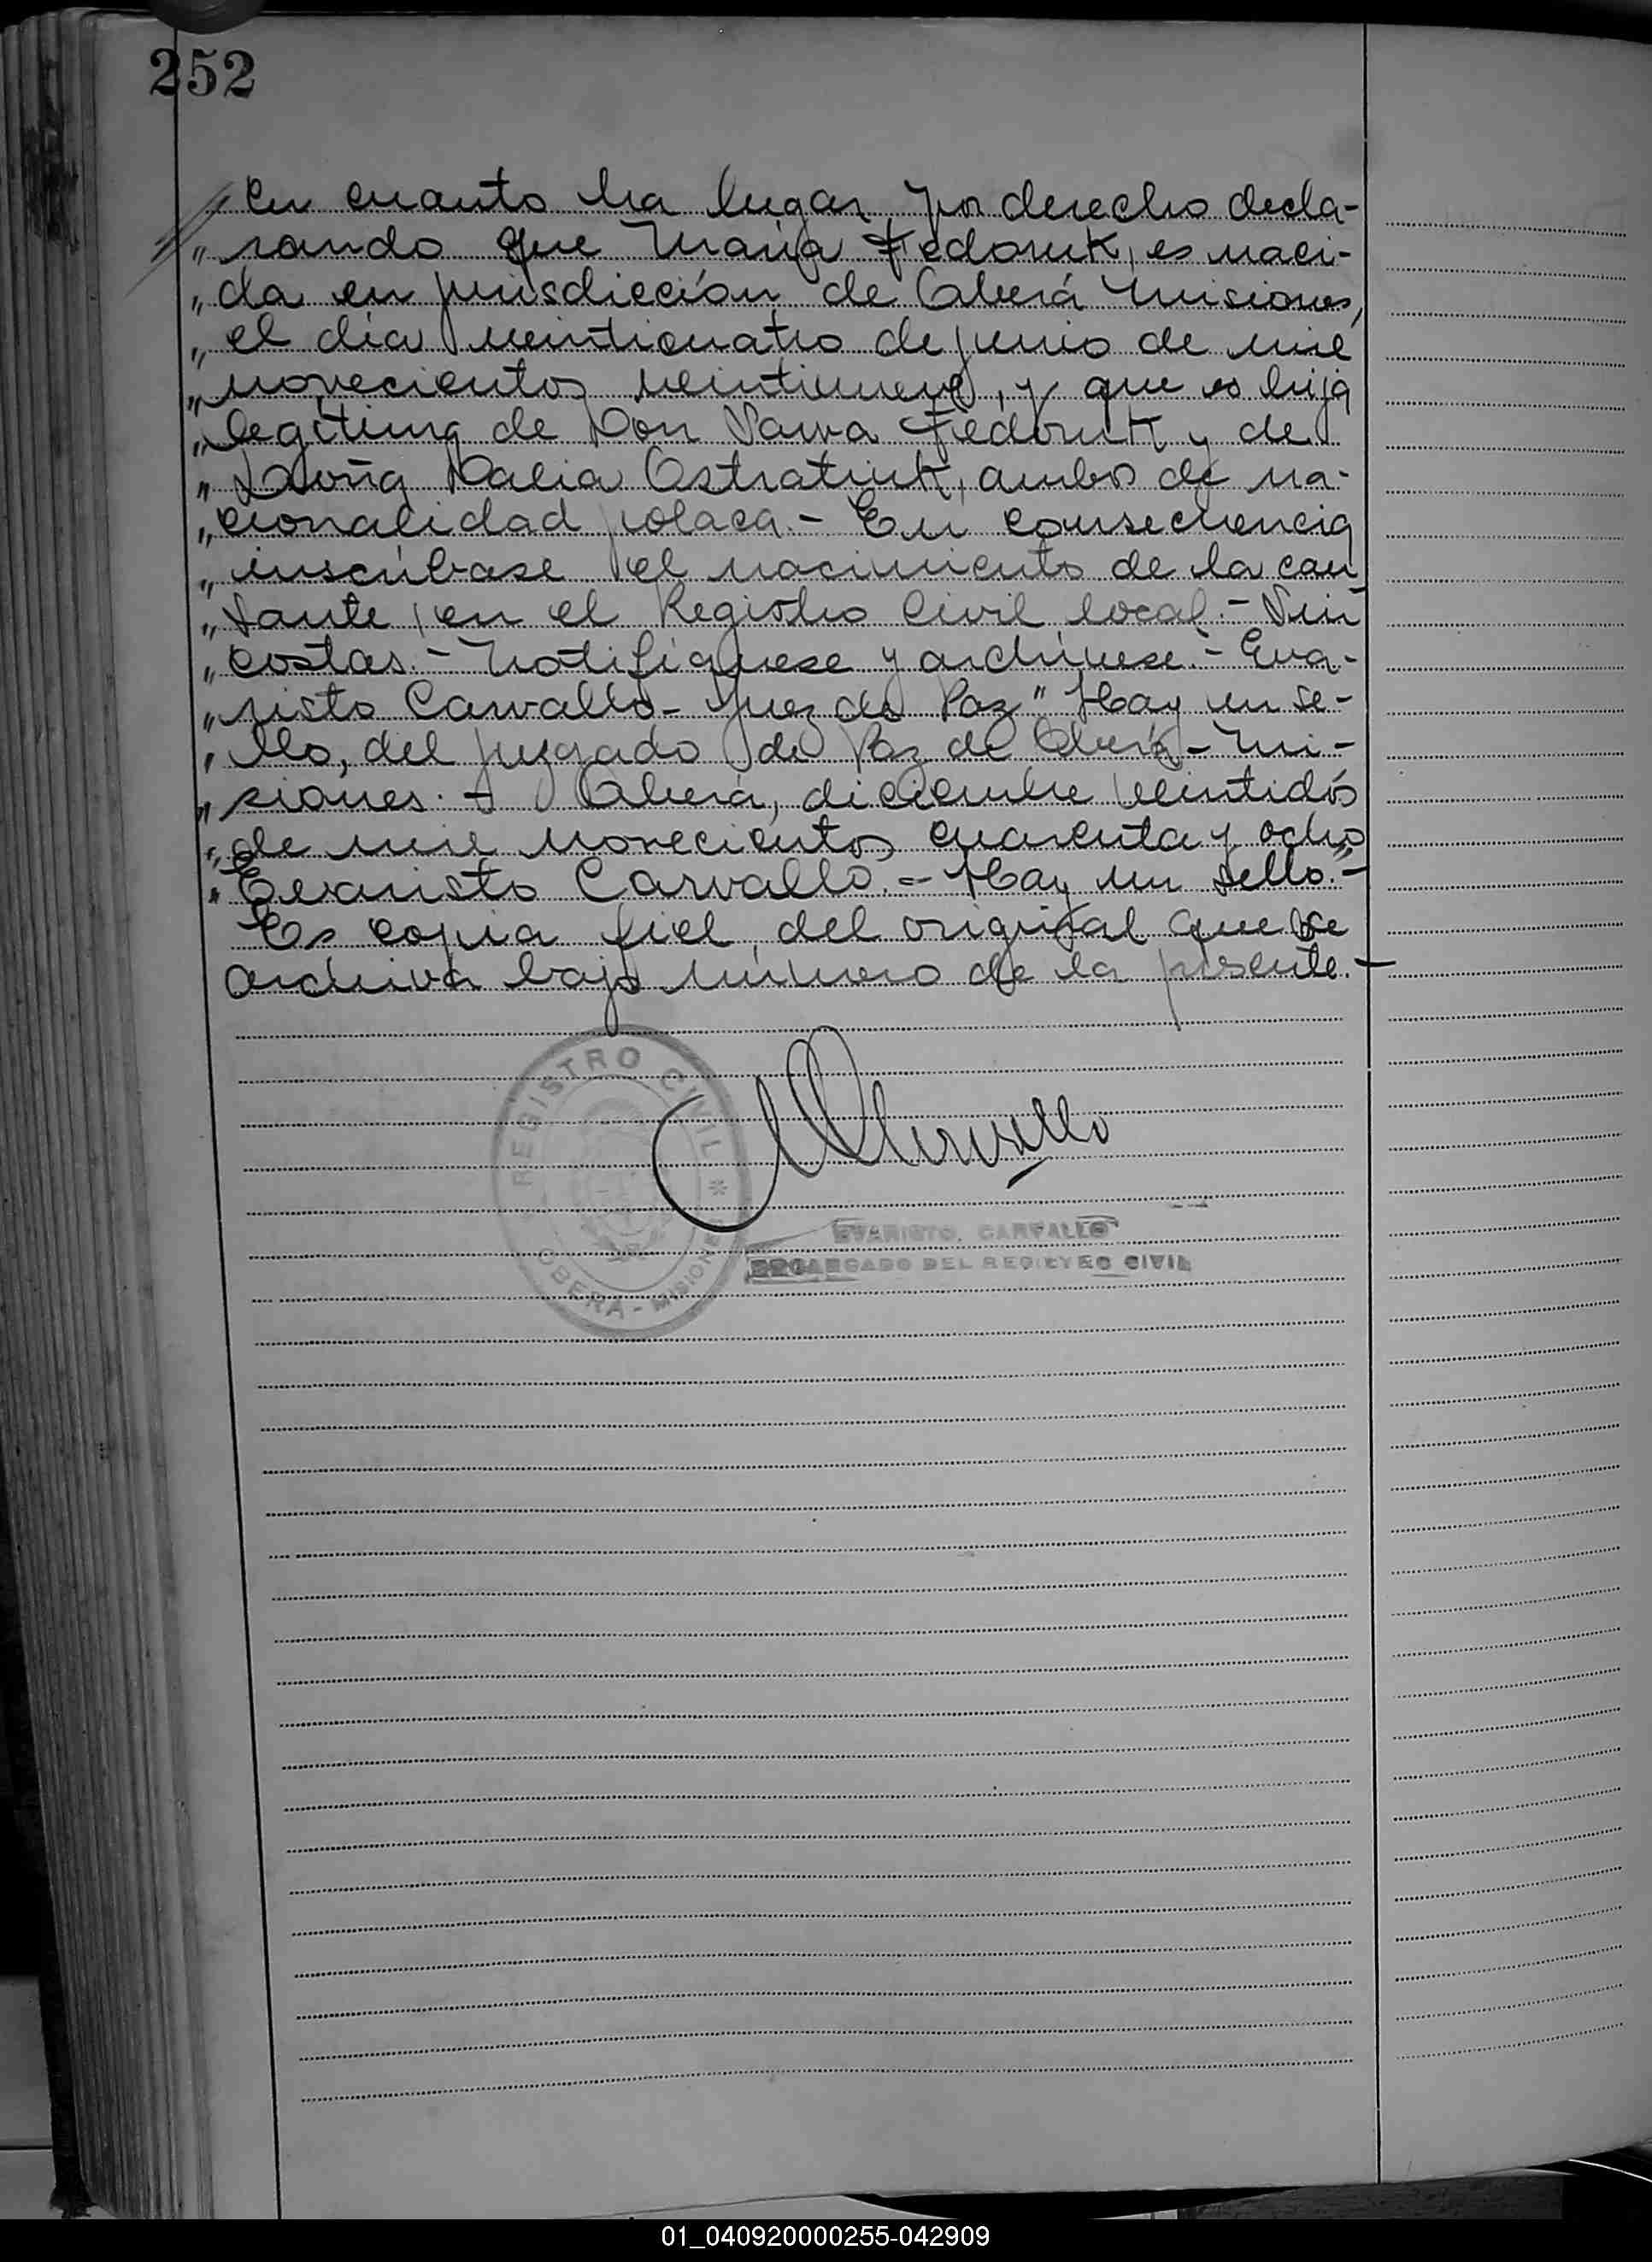 252
en cuanto ha lugar por derecho decla-
" rando que Maria Fedoruk, es naci-
" da en jurisdicción de Oberá Misiones,
" el día veinticuatro de junio de mil
" novecientos veintinueve, y que es hija
" legítima de Don Sawa Fedoruk y de
" Doña Dalia Ostratiuk, ambos de na-
" cionalidad polaca.- En consecuencia
" inscríbase el nacimiento de la cau
" sante, en el Registro Civil local.- Sin
" costas.- Notifíquese y archívese.- Eva-
" risto Carvallo- Juez de Paz" Hay un se-
" llo, del juzgado de Paz de Oberá - Mi-
" siones.- Oberá, diciembre veintidós
" de mil novecientos cuarenta y ocho
" Evaristo Carvallo.- Hay un sello."-
Es copia fiel, del original que se
archiva bajo número de la presente.-
REGISTRO CIVIL
* OBERÁ - MISIONES
EVARISTO CARVALLO
ENCARGADO DEL REGISTRO CIVIL
01_040920000255-042909